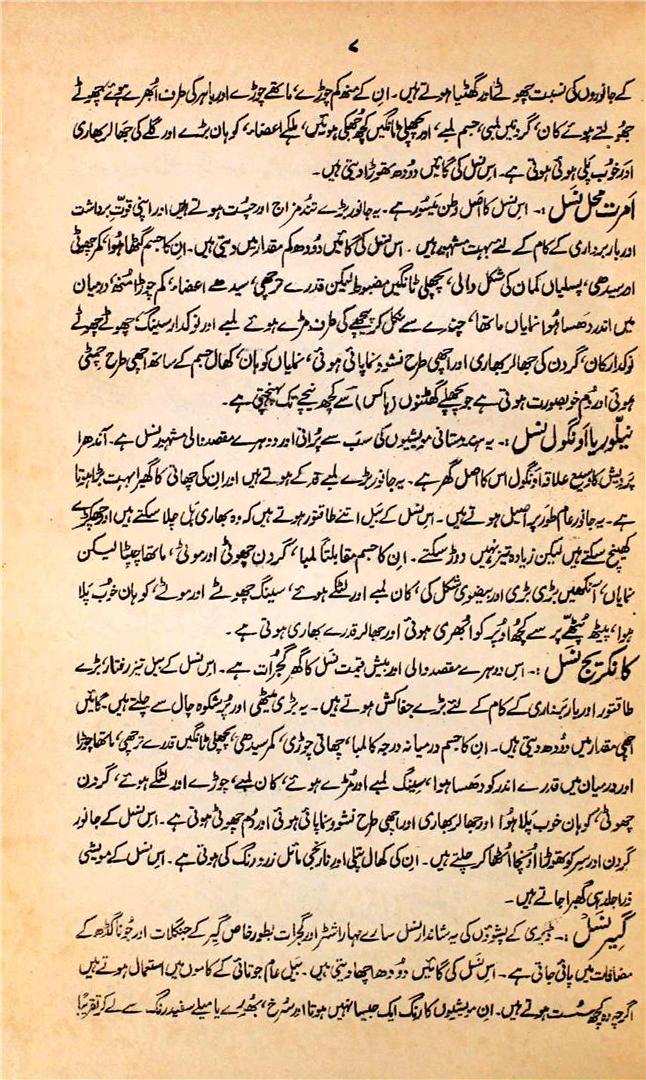 ۷
کے جانوروں کی نسبت چھوٹے اور گھٹیا ہوتے ہیں۔ ان کے منھ کم چوڑے، ماتھے چوڑے اور باہر کی طرف اُبھرے ہوئے، چھوٹے
جھولتے ہوئے کان، گردنیں لمبی، جسم لمبے، اور پچھلی ٹانگیں کچھ جُھکی ہوئیں، ہلکے اعضاء، کوہان بڑے اور گلے کی جھالر بھاری
اور خُوب پَلی ہوئی ہوتی ہے۔ اس نسل کی گائیں دودھ تھوڑا دیتی ہیں۔
امرت محل نسل :۔ اس نسل کا اصل وطن میسُور ہے۔ یہ جانور بڑے تند مزاج اور چُست ہوتے ہیں اور اپنی قوتِ برداشت
اور باربرداری کے کام کے لئے بہت مشہور ہیں۔ اس نسل کی گائیں دُودھ کم مقدار میں دیتی ہیں۔ ان کا جسم گٹھا ہُوا، کمر چھوٹی
اور سیدھی، پسلیاں کمان کی شکل والی، پچھلی ٹانگیں مضبوط لیکن قدرے ترچھی، سیدھے اعضاء، کم چوڑا منھ، درمیان
میں اندر دھسا ہُوا نمایاں ماتھا، چندرے سے نکل کر پیچھے کی طرف مڑے ہوئے لمبے اور نوکدار سینگ، چھوٹے چھوٹے
نوکدار کان، گردن کی جھالر بھاری اور اچھی طرح نشوونما پائی ہوئی، نمایاں کوہان، کھال جسم کے ساتھ اچھی طرح چمٹی
ہوئی اور دُم خوبصورت ہوتی ہے جو پچھلے گھٹنوں (ہاکس) سے کچھ نیچے تک پہنچتی ہے۔
نیلّور یا اونگول نسل :۔ یہ ہندوستانی مویشیوں کی سب سے پُرانی اور دوہرے مقصد والی مشہور نسل ہے۔ آندھرا
پردیش کا وسیع علاقہ اونگول اس کا اصل گھر ہے۔ یہ جانور بڑے لمبے قد کے ہوتے ہیں اور ان کی چھاتی کا گھیرا بہت بڑا ہوتا
ہے۔ یہ جانور عام طور پر اصیل ہوتے ہیں۔ اس نسل کے بیل اتنے طاقتور ہوتے ہیں کہ وہ بھاری ہل چلا سکتے ہیں اور چھکڑے
کھینچ سکتے ہیں لیکن زیادہ تیز نہیں دوڑ سکتے۔ ان کا جسم مقابلتاً لمبا، گردن چھوٹی اور موٹی، ماتھا چپٹا لیکن
نمایاں، آنکھیں بڑی بڑی اور بیضوی شکل کی، کان لمبے اور لٹکے ہوئے، سینگ چھوٹے اور موٹے، کوہان خُوب پلا
ہوا، پیٹھ پُٹھے پر سے کچھ اُوپر کو اُبھری ہوئی اور جھالر قدرے بھاری ہوتی ہے۔
کانکریج نسل :۔ اس دوہرے مقصد والی اور بیش قیمت نسل کا گھر گجرات ہے۔ اس نسل کے بیل تیز رفتار، بڑے
طاقتور اور باربرداری کے کام کے لئے بڑے جفاکش ہوتے ہیں۔ یہ بڑی میٹھی اور پُرشکوہ چال سے چلتے ہیں۔ گائیں
اچھی مقدار میں دُودھ دیتی ہیں۔ ان کا جسم درمیانہ درجہ کا لمبا، چھاتی چوڑی، کمر سیدھی، پچھلی ٹانگیں قدرے ترچھی، ماتھا چوڑا
اور درمیان میں قدرے اندر کو دھسا ہوا، سینگ لمبے اور مُڑے ہوئے، کان لمبے، چوڑے اور لٹکے ہوئے، گردن
چھوٹی، کوہان خوب پلا ہُوا اور جھالر بھاری اور اچھی طرح نشوونما پائی ہوئی اور دُم چھوٹی ہوتی ہے۔ اس نسل کے جانور
گردن اور سر کو تھوڑا اُونچا اُٹھا کر چلتے ہیں۔ ان کی کھال پتلی اور نارنجی مائل زرد رنگ کی ہوتی ہے۔ اس نسل کے مویشی
ذرا جلد ہی گھبرا جاتے ہیں۔
گیر نسل :۔ ڈیری کے پشوؤں کی یہ شاندار نسل سارے مہاراشٹر اور گجرات بطورِ خاص گیر کے جنگلات اور جُوناگڈھ کے
مضافات میں پائی جاتی ہے۔ اس نسل کی گائیں دُودھ اچھا دیتی ہیں۔ بیل عام جوتائی کے کاموں میں استعمال ہوتے ہیں
اگرچہ وہ کچھ سُست ہوتے ہیں۔ ان مویشیوں کا رنگ ایک جیسا نہیں ہوتا اور سُرخ، بھُورے یا میلے سفید رنگ سے لے کر تقریباً